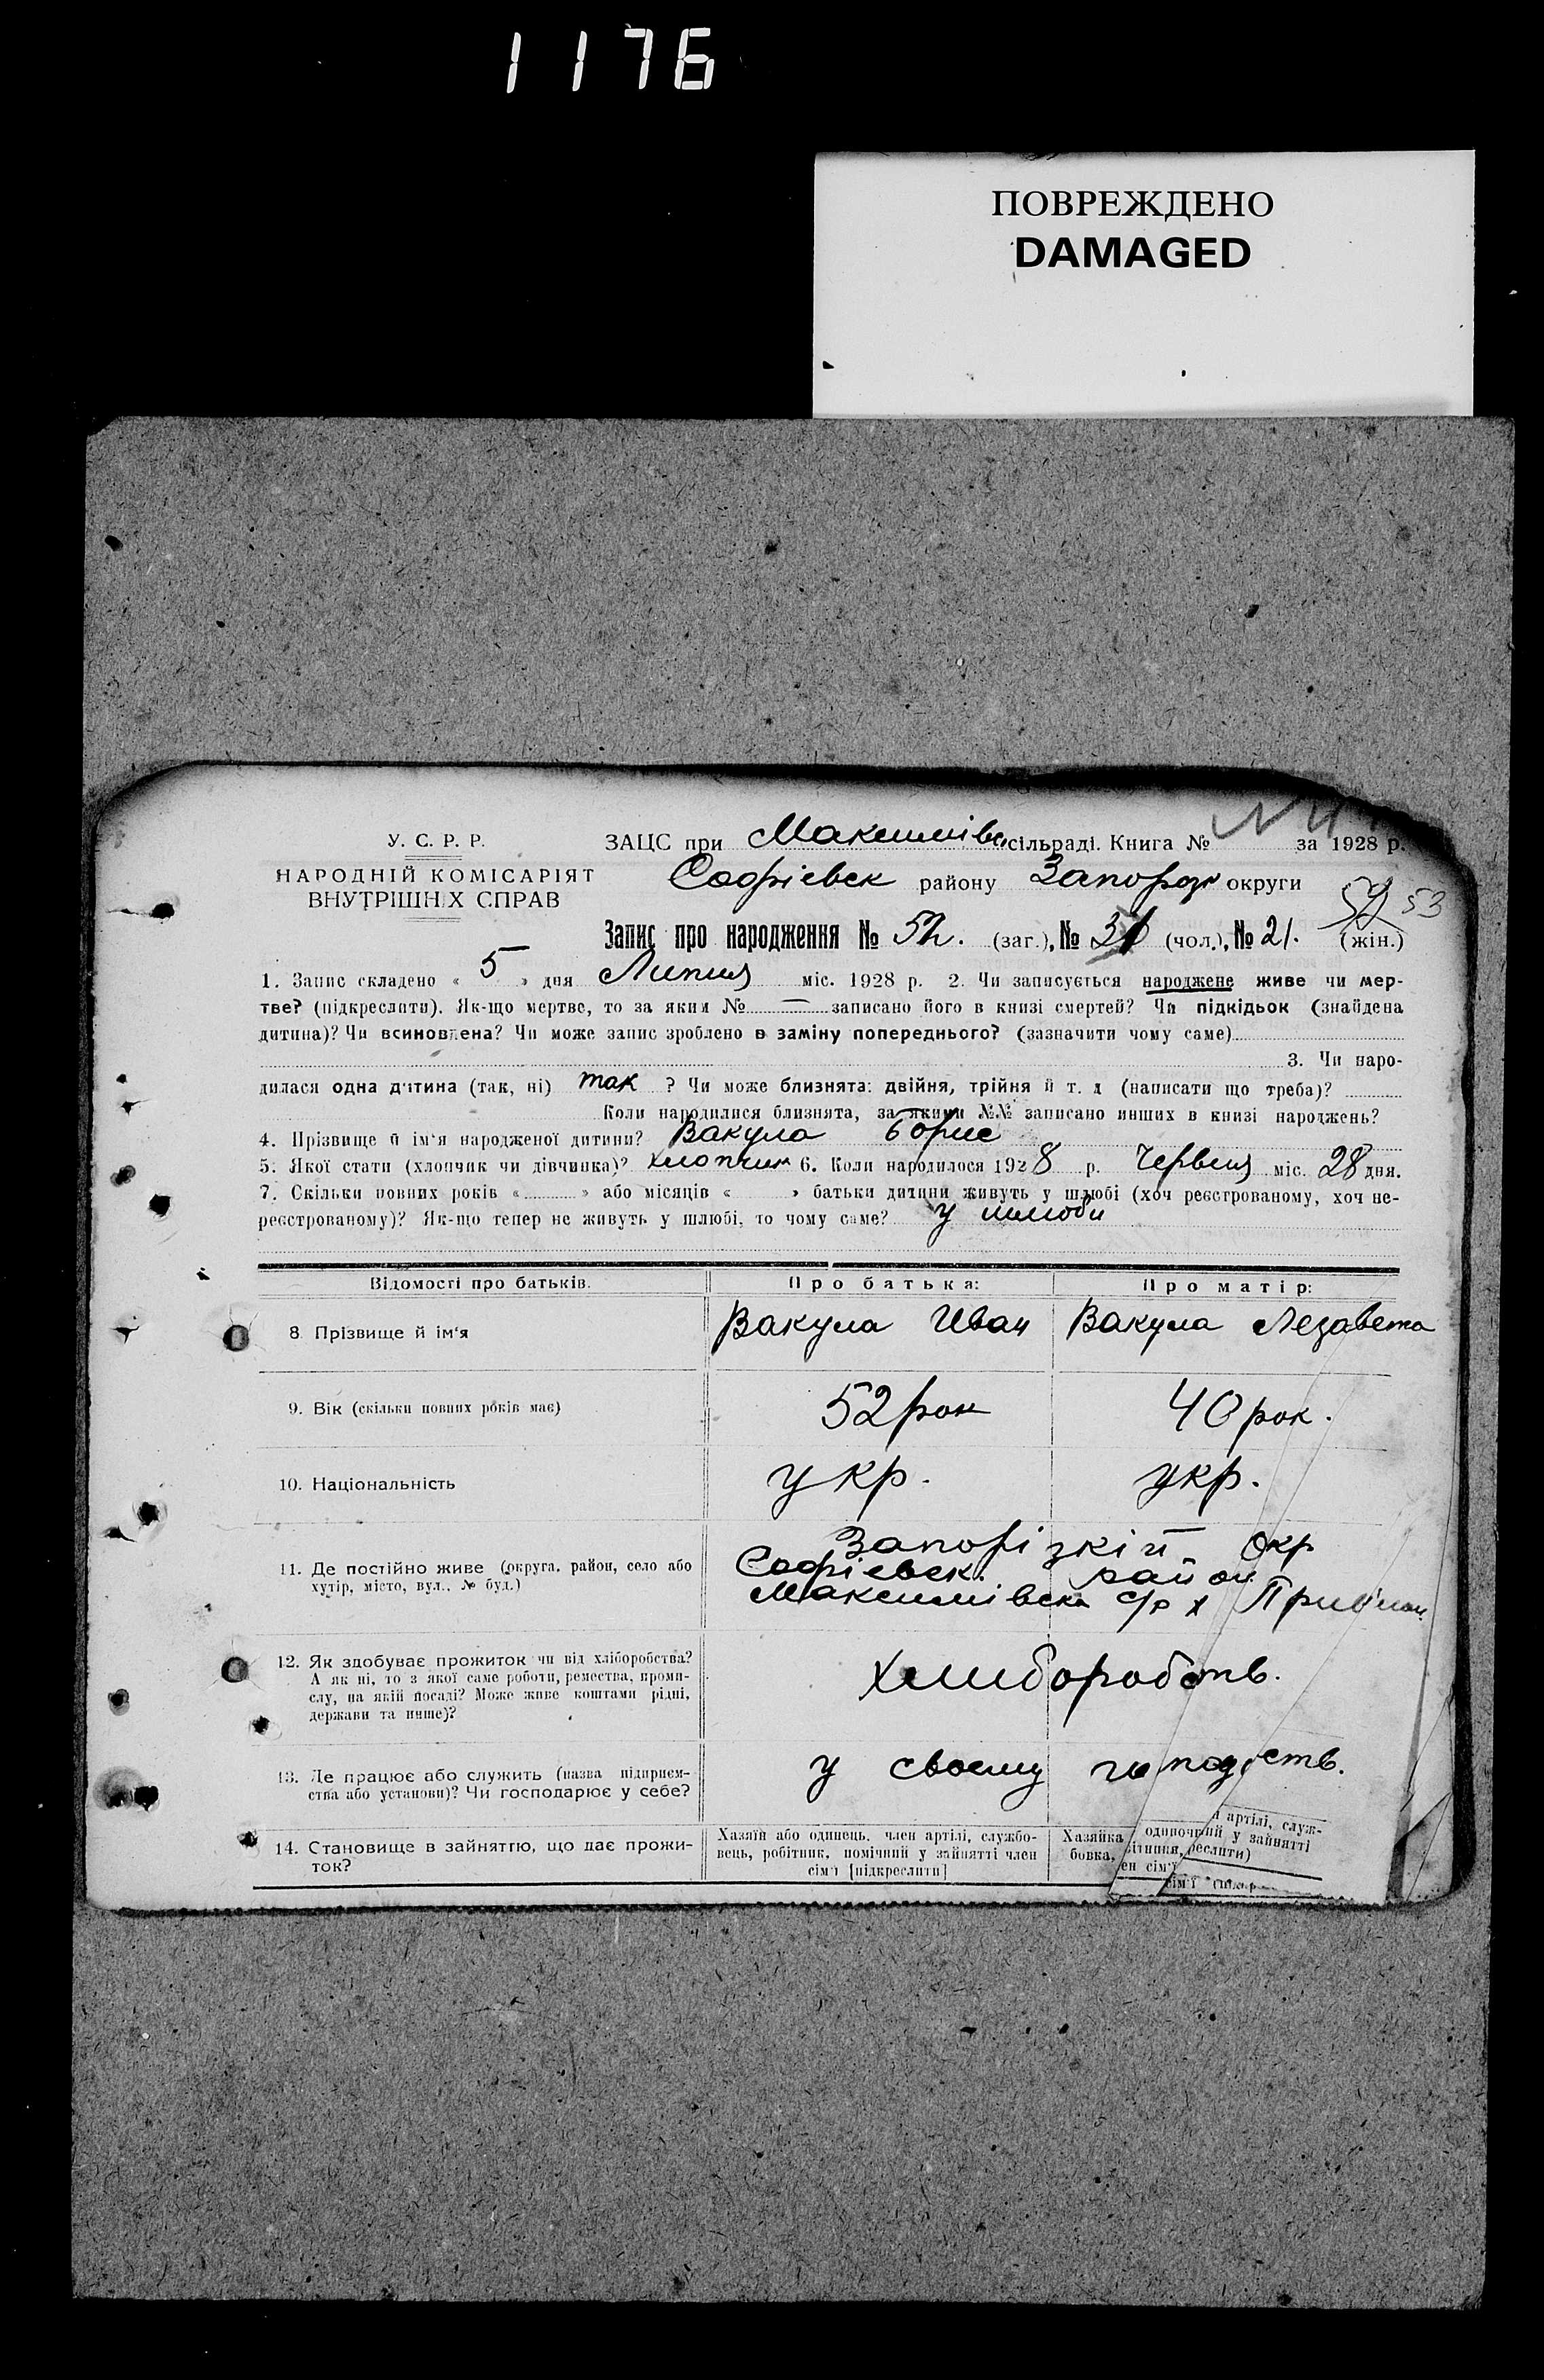 1176
ПОВРЕЖДЕНО
DAMAGED
У. С. Р. Р.
НАРОДНІЙ КОМІСАРІЯТ
ВНУТРІШНІХ СПРАВ
ЗАЦС при Максимівс. сільраді. Книга № за 1928 р.
Софіевск району Запорозк округи
52 53
Запис про народження № 52. (заг.), № 31 (чол.), № 21. (жін.)
1. Запис складено « 5 » дня Липня міс. 1928 р. 2. Чи записується народжене живе чи мер-
тве? (підкреслити). Як-що мертве, то за яким № — записано його в книзі смертей? Чи підкідьок (знайдена
дитина)? Чи всиновлена? Чи може запис зроблено в заміну попереднього? (зазначити чому саме)
3. Чи наро-
дилася одна дитина (так, ні) так ? Чи може близнята: двійня, трійня й т. д (написати що треба)?
Коли народилися близнята, за якими №№ записано инших в книзі народжень?
4. Прізвище й ім'я народженої дитини? Вакула Борис
5. Якої стати (хлопчик чи дівчинка)? хлопчик 6. Коли народилося 1928 р. Червня міс. 28 дня.
7. Скільки повних років « » або місяців « » батьки дитини живуть у шлюбі (хоч реєстрованому, хоч не-
реєстрованому)? Як-що тепер не живуть у шлюбі, то чому саме? у шлюби
Відомості про батьків. Про батька: Про матір:
8. Прізвище й ім'я Вакула Иван Вакула Лезавета
9. Вік (скільки повних років має) 52 рок 40 рок.
10. Національність укр. укр.
11. Де постійно живе (округа, район, село або
хутір, місто, вул., № буд.)
Запорізкій Окр
Софіевск. район
Максимівска с/р х
12. Як здобуває прожиток чи від хліборобства?
А як ні, то з якої саме роботи, ремества, проми-
слу, на якій посаді? Може живе коштами рідні,
держави та инше)?
хлиборобств.
13. Де працює або служить (назва підприєм-
ства або установи)? Чи господарює у себе?
у своему
14. Становище в зайняттю, що дає прожи-
ток?
Хазяїн або одинець, член артілі, службо-
вець, робітник, помічний у зайнятті член
сім'ї [підкреслити]
Хазяйка одиноч
бовка,
артілі, служ-
у зайнятті